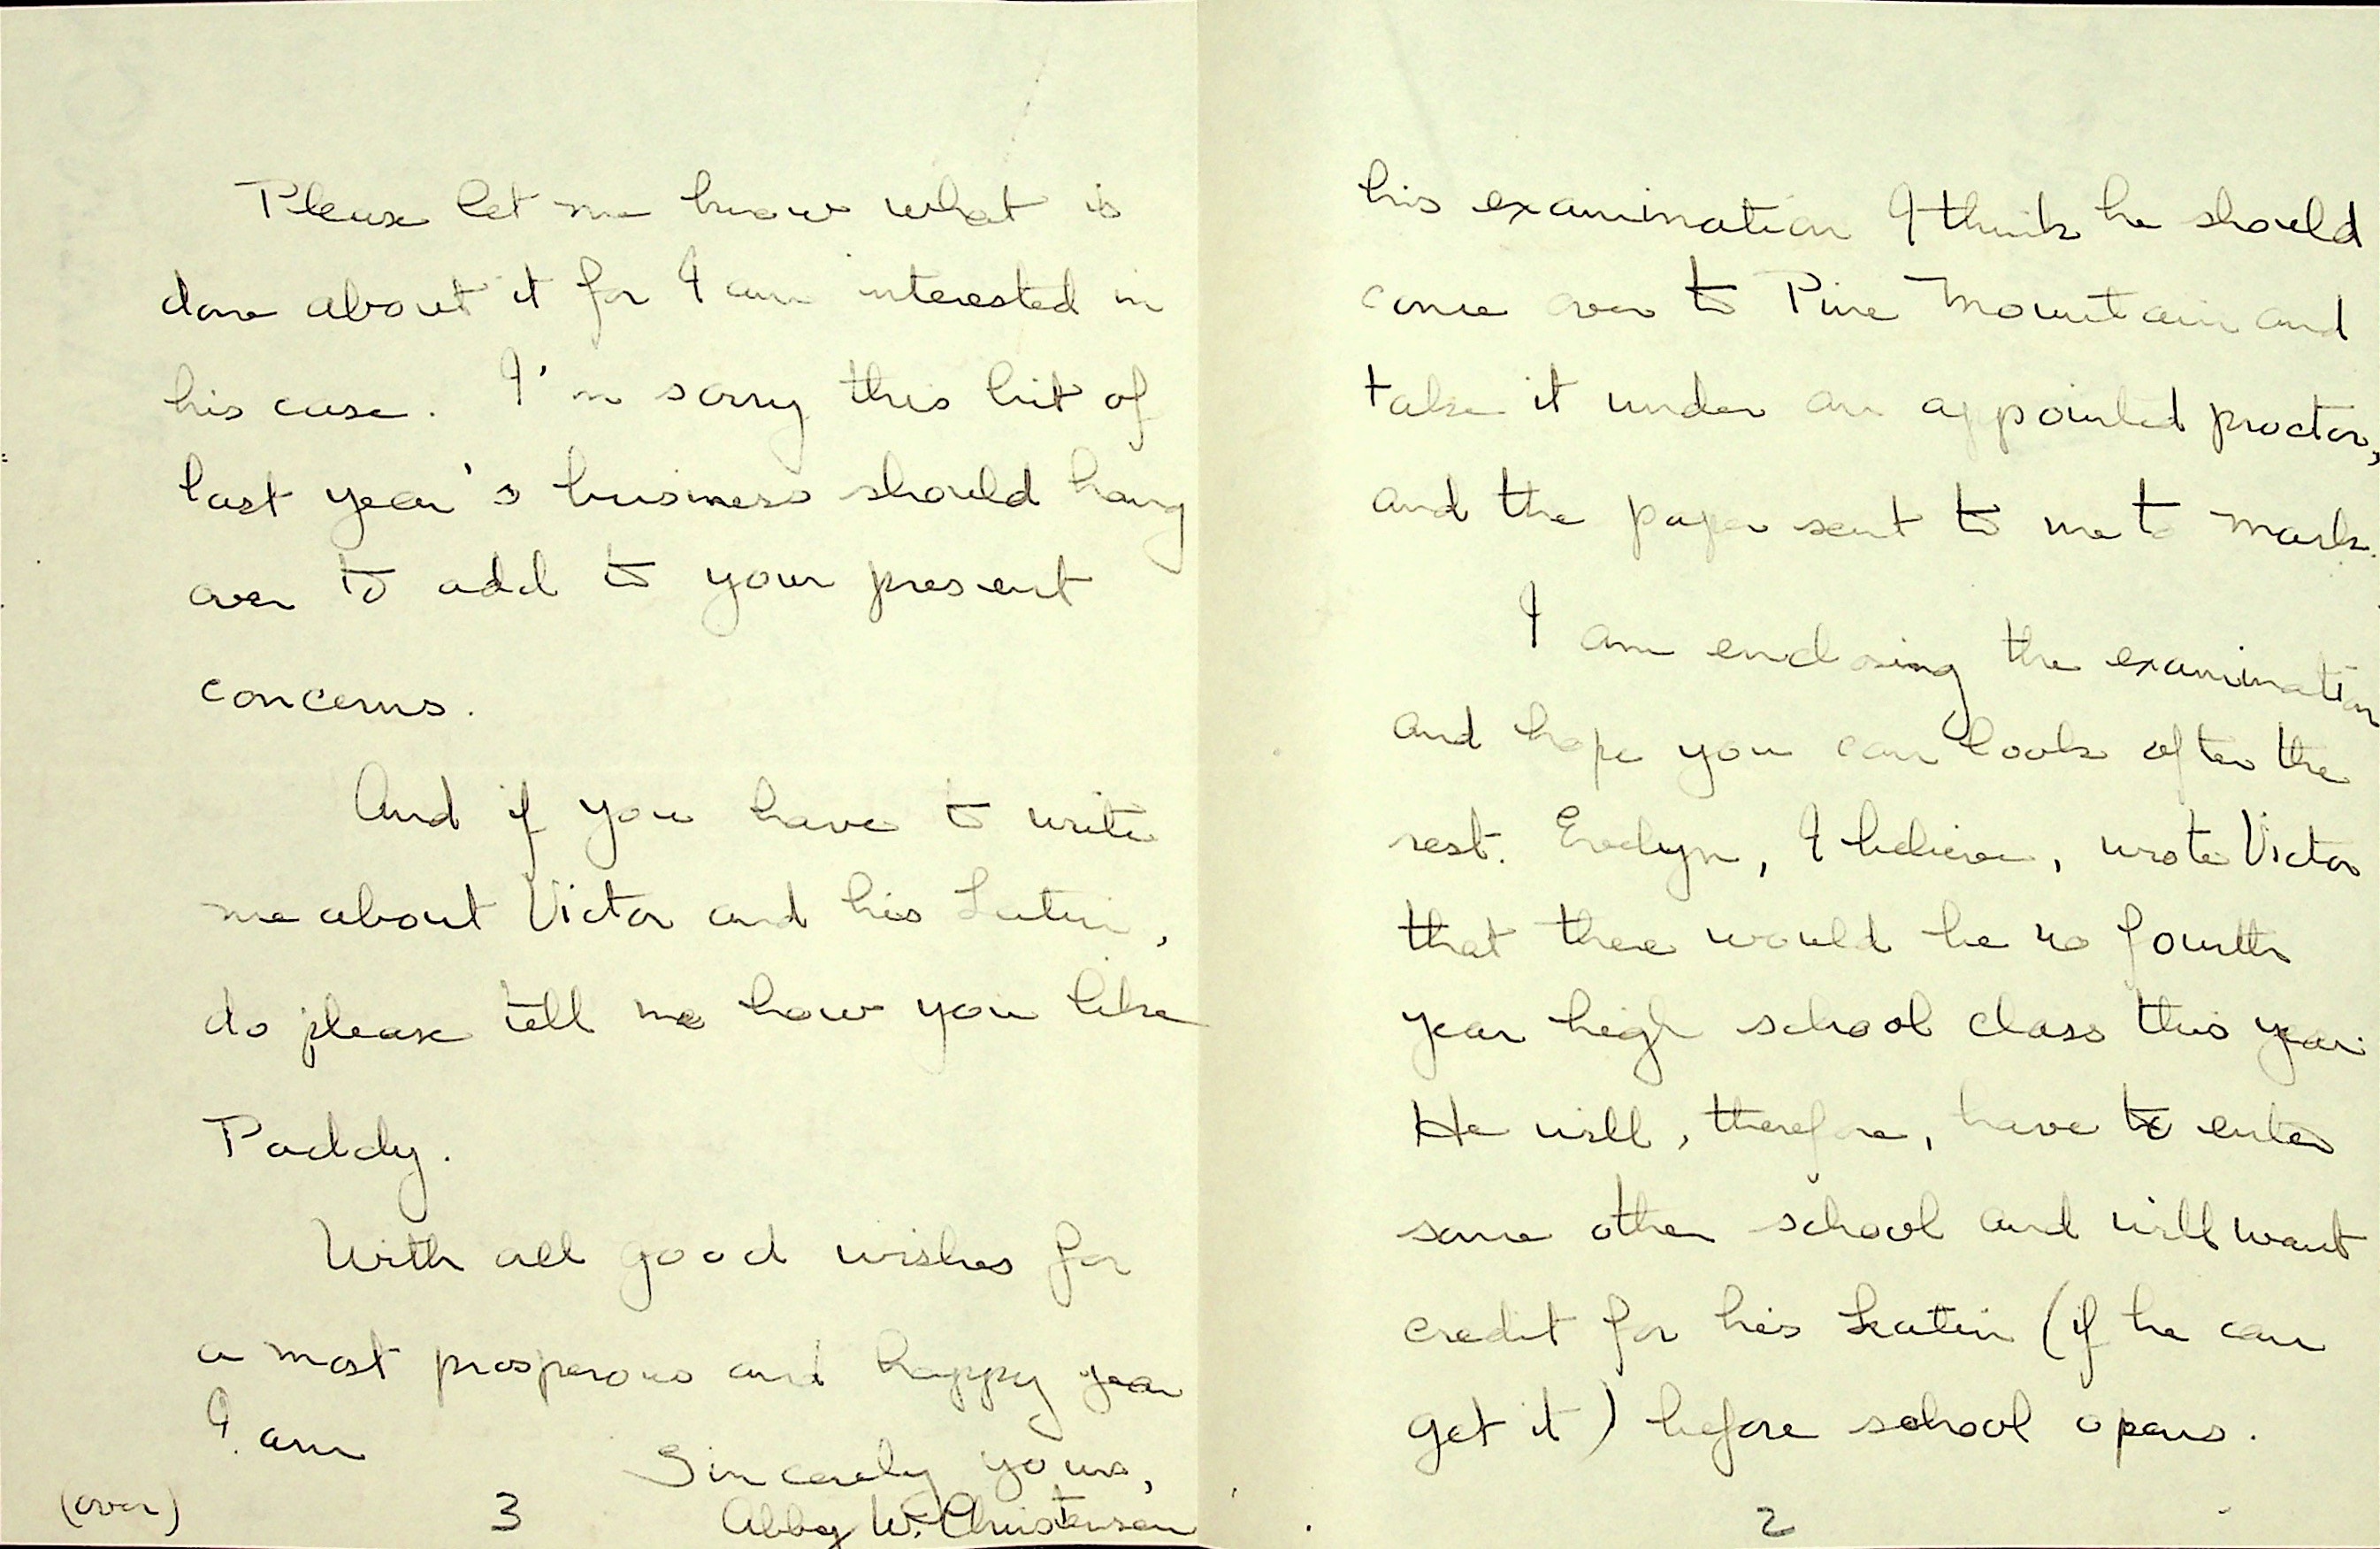 Please let me know what is
done about it for I am interested in
his case. I'm sorry this bit of
last year's business should hang
over to add to your present
concerns.
And if you have to write
me about Victor and his Latin,
do please tell me how you like
Paddy.
With all good wishes for
a most prosperous and happy year
I am
Sincerely yours,
Abby W. Christensen
(over)
3
his examination I think he should
come over to Pine Mountain and
take it under an appointed proctor,
and the paper sent to me to mark.
I am enclosing the examination
and hope you can look after the
rest. Evelyn, I believe, wrote Victor
that there would be no fourth
year high school class this year.
He will, therefore, have to enter
some other school and will want
credit for his Latin (if he can
get it) before school opens.
2